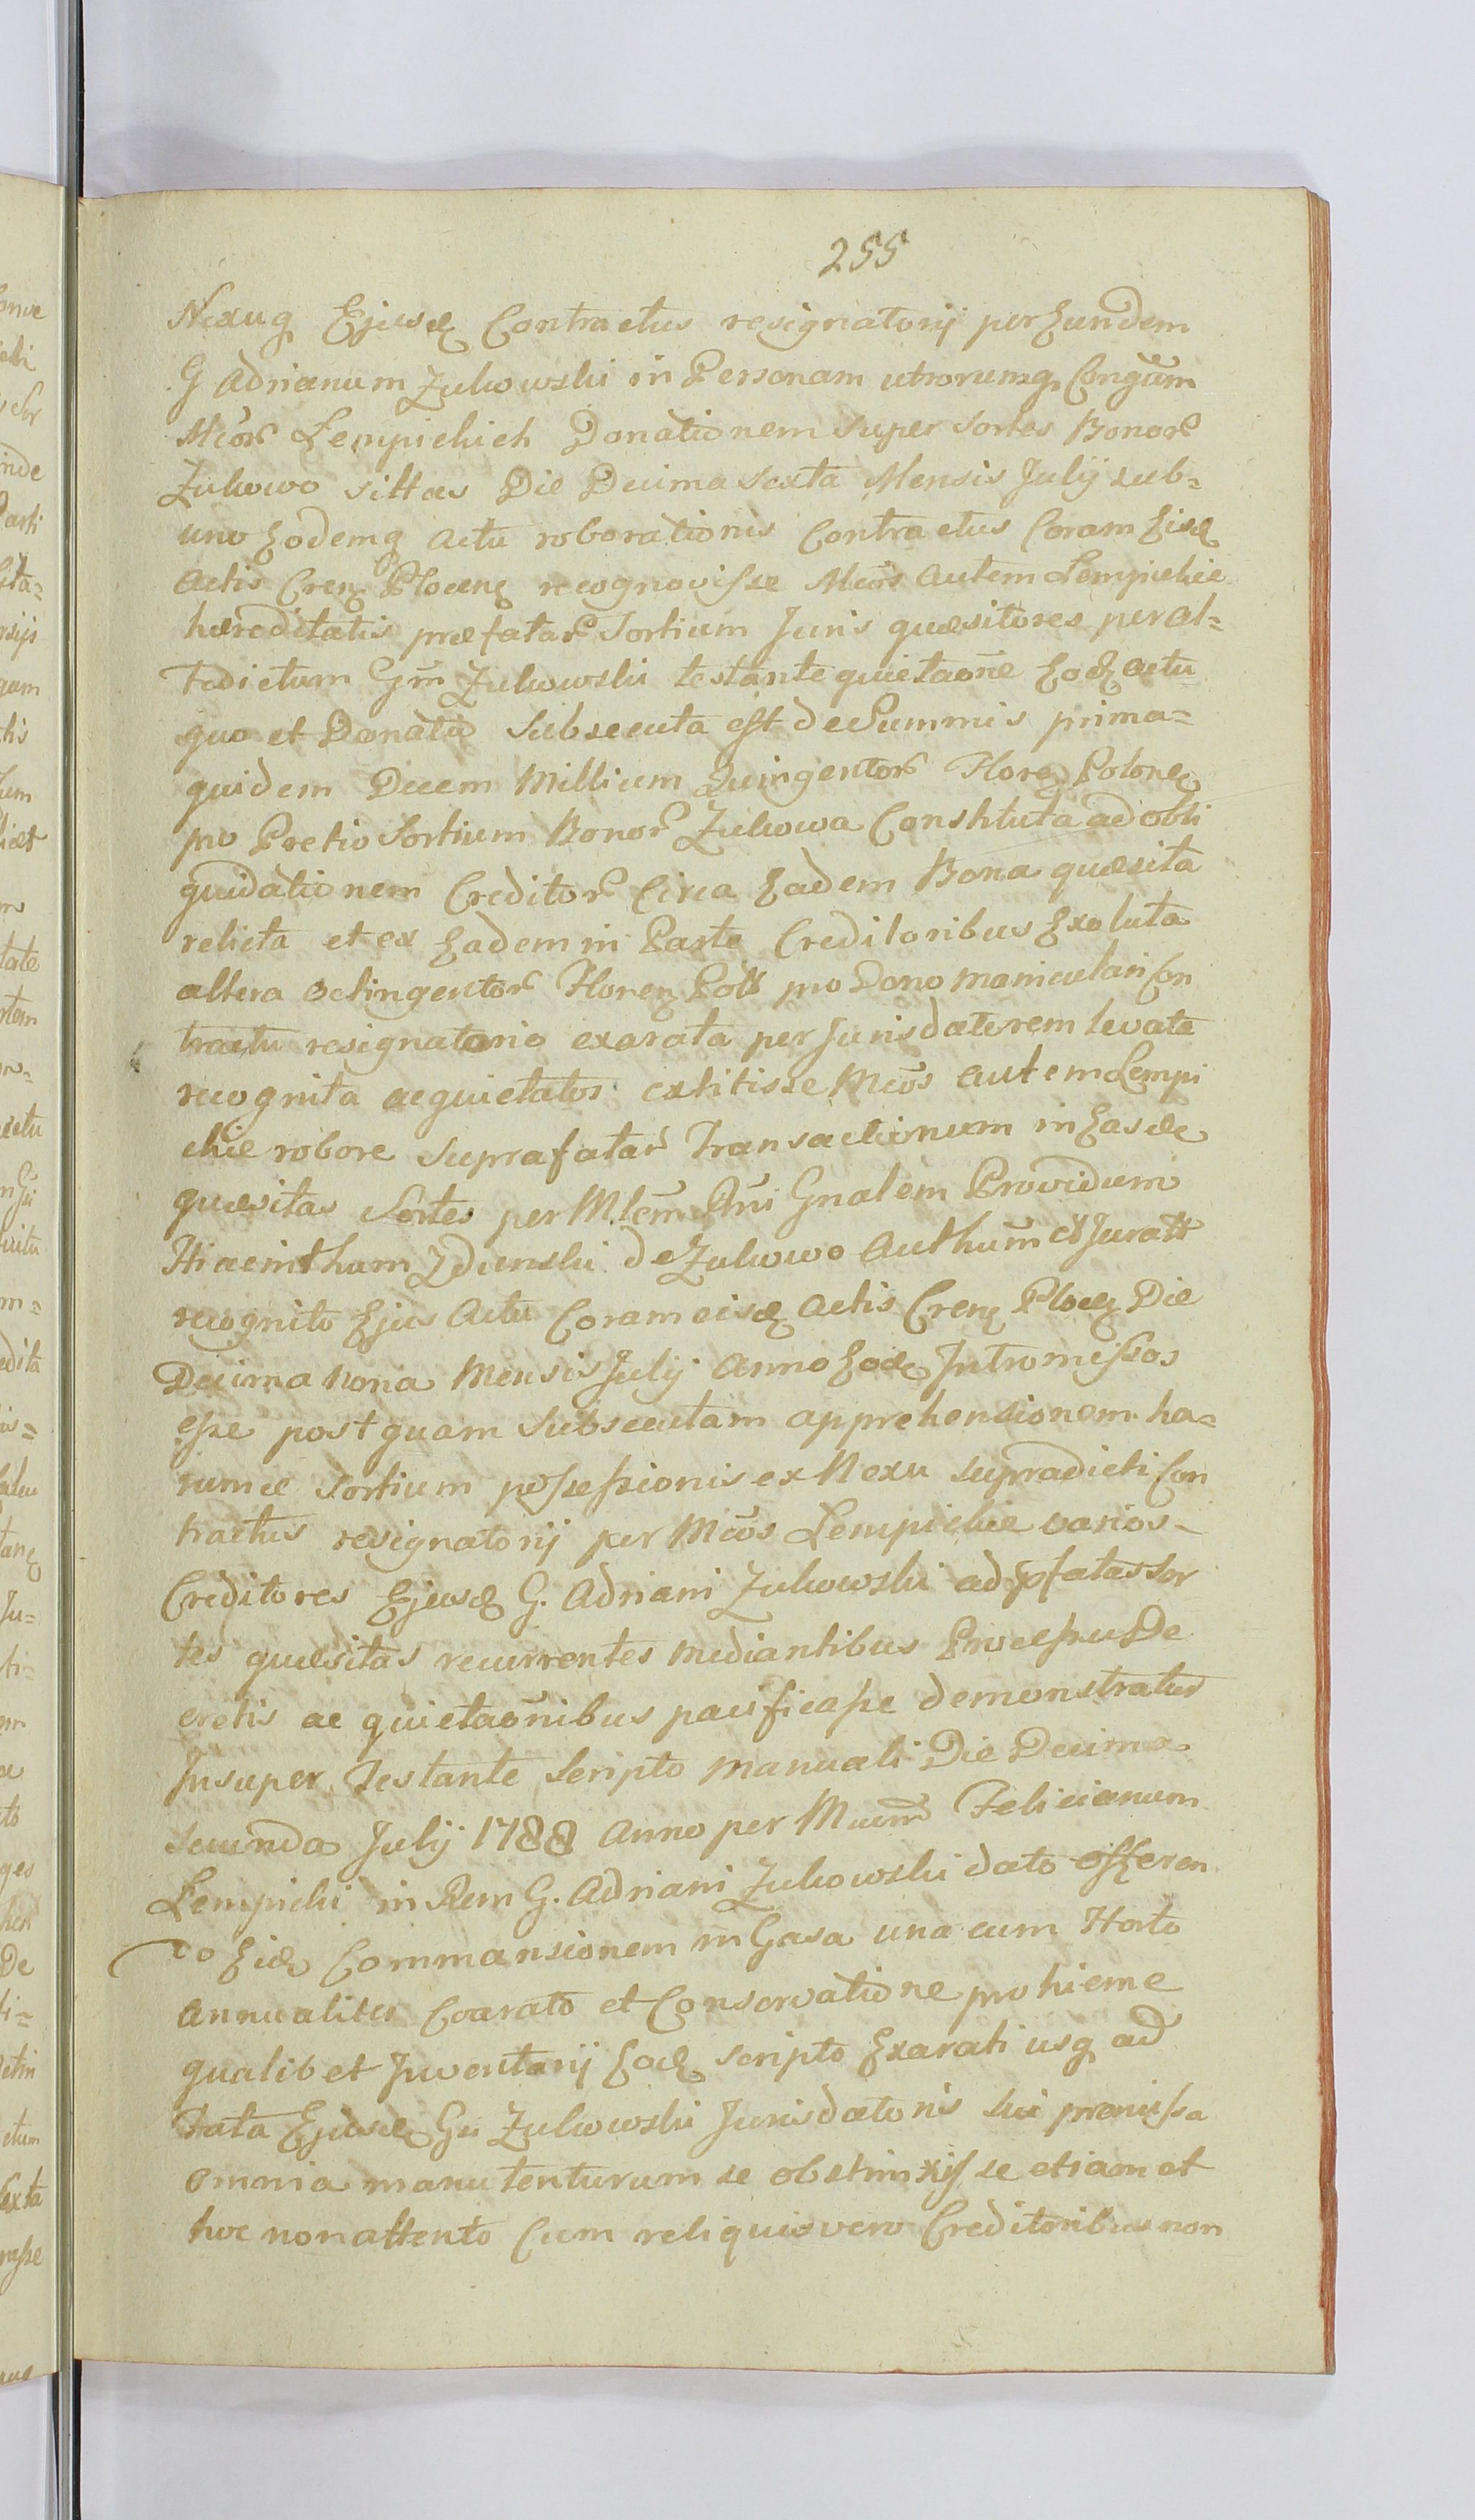 255
Nexuq Ejusd Contractus resignatorij per Eundem
G Adrianum Zukowski in Personam utrorumq Congum
Mcor Lempickich Donationem super Sortes Bonor
Zukowo sittas Die Decima Sexta Mensis Julij sub-
uno Eodemq Actu roborationis Contractus Coram Eisd
Actis Cren Plocen recognovisse Mcos Autem Lempickie
hæreditatis præfatar Sortium Juris quæsitores per At-
tedictum Gm Zukowski testante quietaone Eod actu
quo et Donatio Subsecuta est de Summis prima-
quidem Decem Millium Quingentor Floren Polone
pro Pretio Sortium Bonor Zukowa Constituta ad obli
quidationem Creditor Circa Eadem Bona quæsita
relicta et ex Eadem in Parte Creditoribus Exoluta
altera octingentor Floren Poll pro Dono maniculari Con
tractu resignatorio exarata per Jurisdatorem levate
recognita acquietatos extitisse Mcos autem Lempi
ckie robore Suprafatar Transactionum in Easde
quæsitas Sortes per Mlem Rni Gnalem Providum
Hiacinthum Zdunski de Zukowo Authum et Juratt
recognito Ejus Actu Coram eisd Actis Cren Ploce Die
Decima Nona Mensis Julij Anno Eode Intromissos
esse post quam Subsecutam apprehensionem ha-
rumce Sortium possessionis ex Nexu supradicti Con
tractus resignatorij per Mcos Lempickie varios-
Creditores Ejusd G. Adriani Zukowski ad pfatas Sor
tes quæsitas recurrentes mediantibus Processu De
cretis ac quietaonibus pacificasse demonstratur
Insuper Testante Scripto manuali Die Decima
Secunda Julij 1788 Anno per Mcum Felicianum
Lempicki in Rem G. Adriani Zukowski dato offeren
do Eid Commansionem in Casa una cum Horto
Annualiter Coarato et Conservatione pro hieme
qualibet Inventarij Eod scripto Exarati usq ad
Fata Ejusd Gi Zukowski Jurisdatoris sui præmissa
omnia manutenturum se obstinxisse etiam et
hoc non attento Cum reliquis vero Creditoribus non